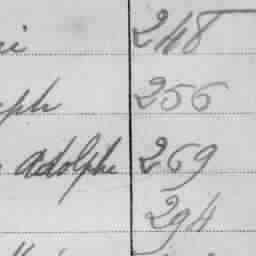 i 248
ph 256
Adolphe 269
294